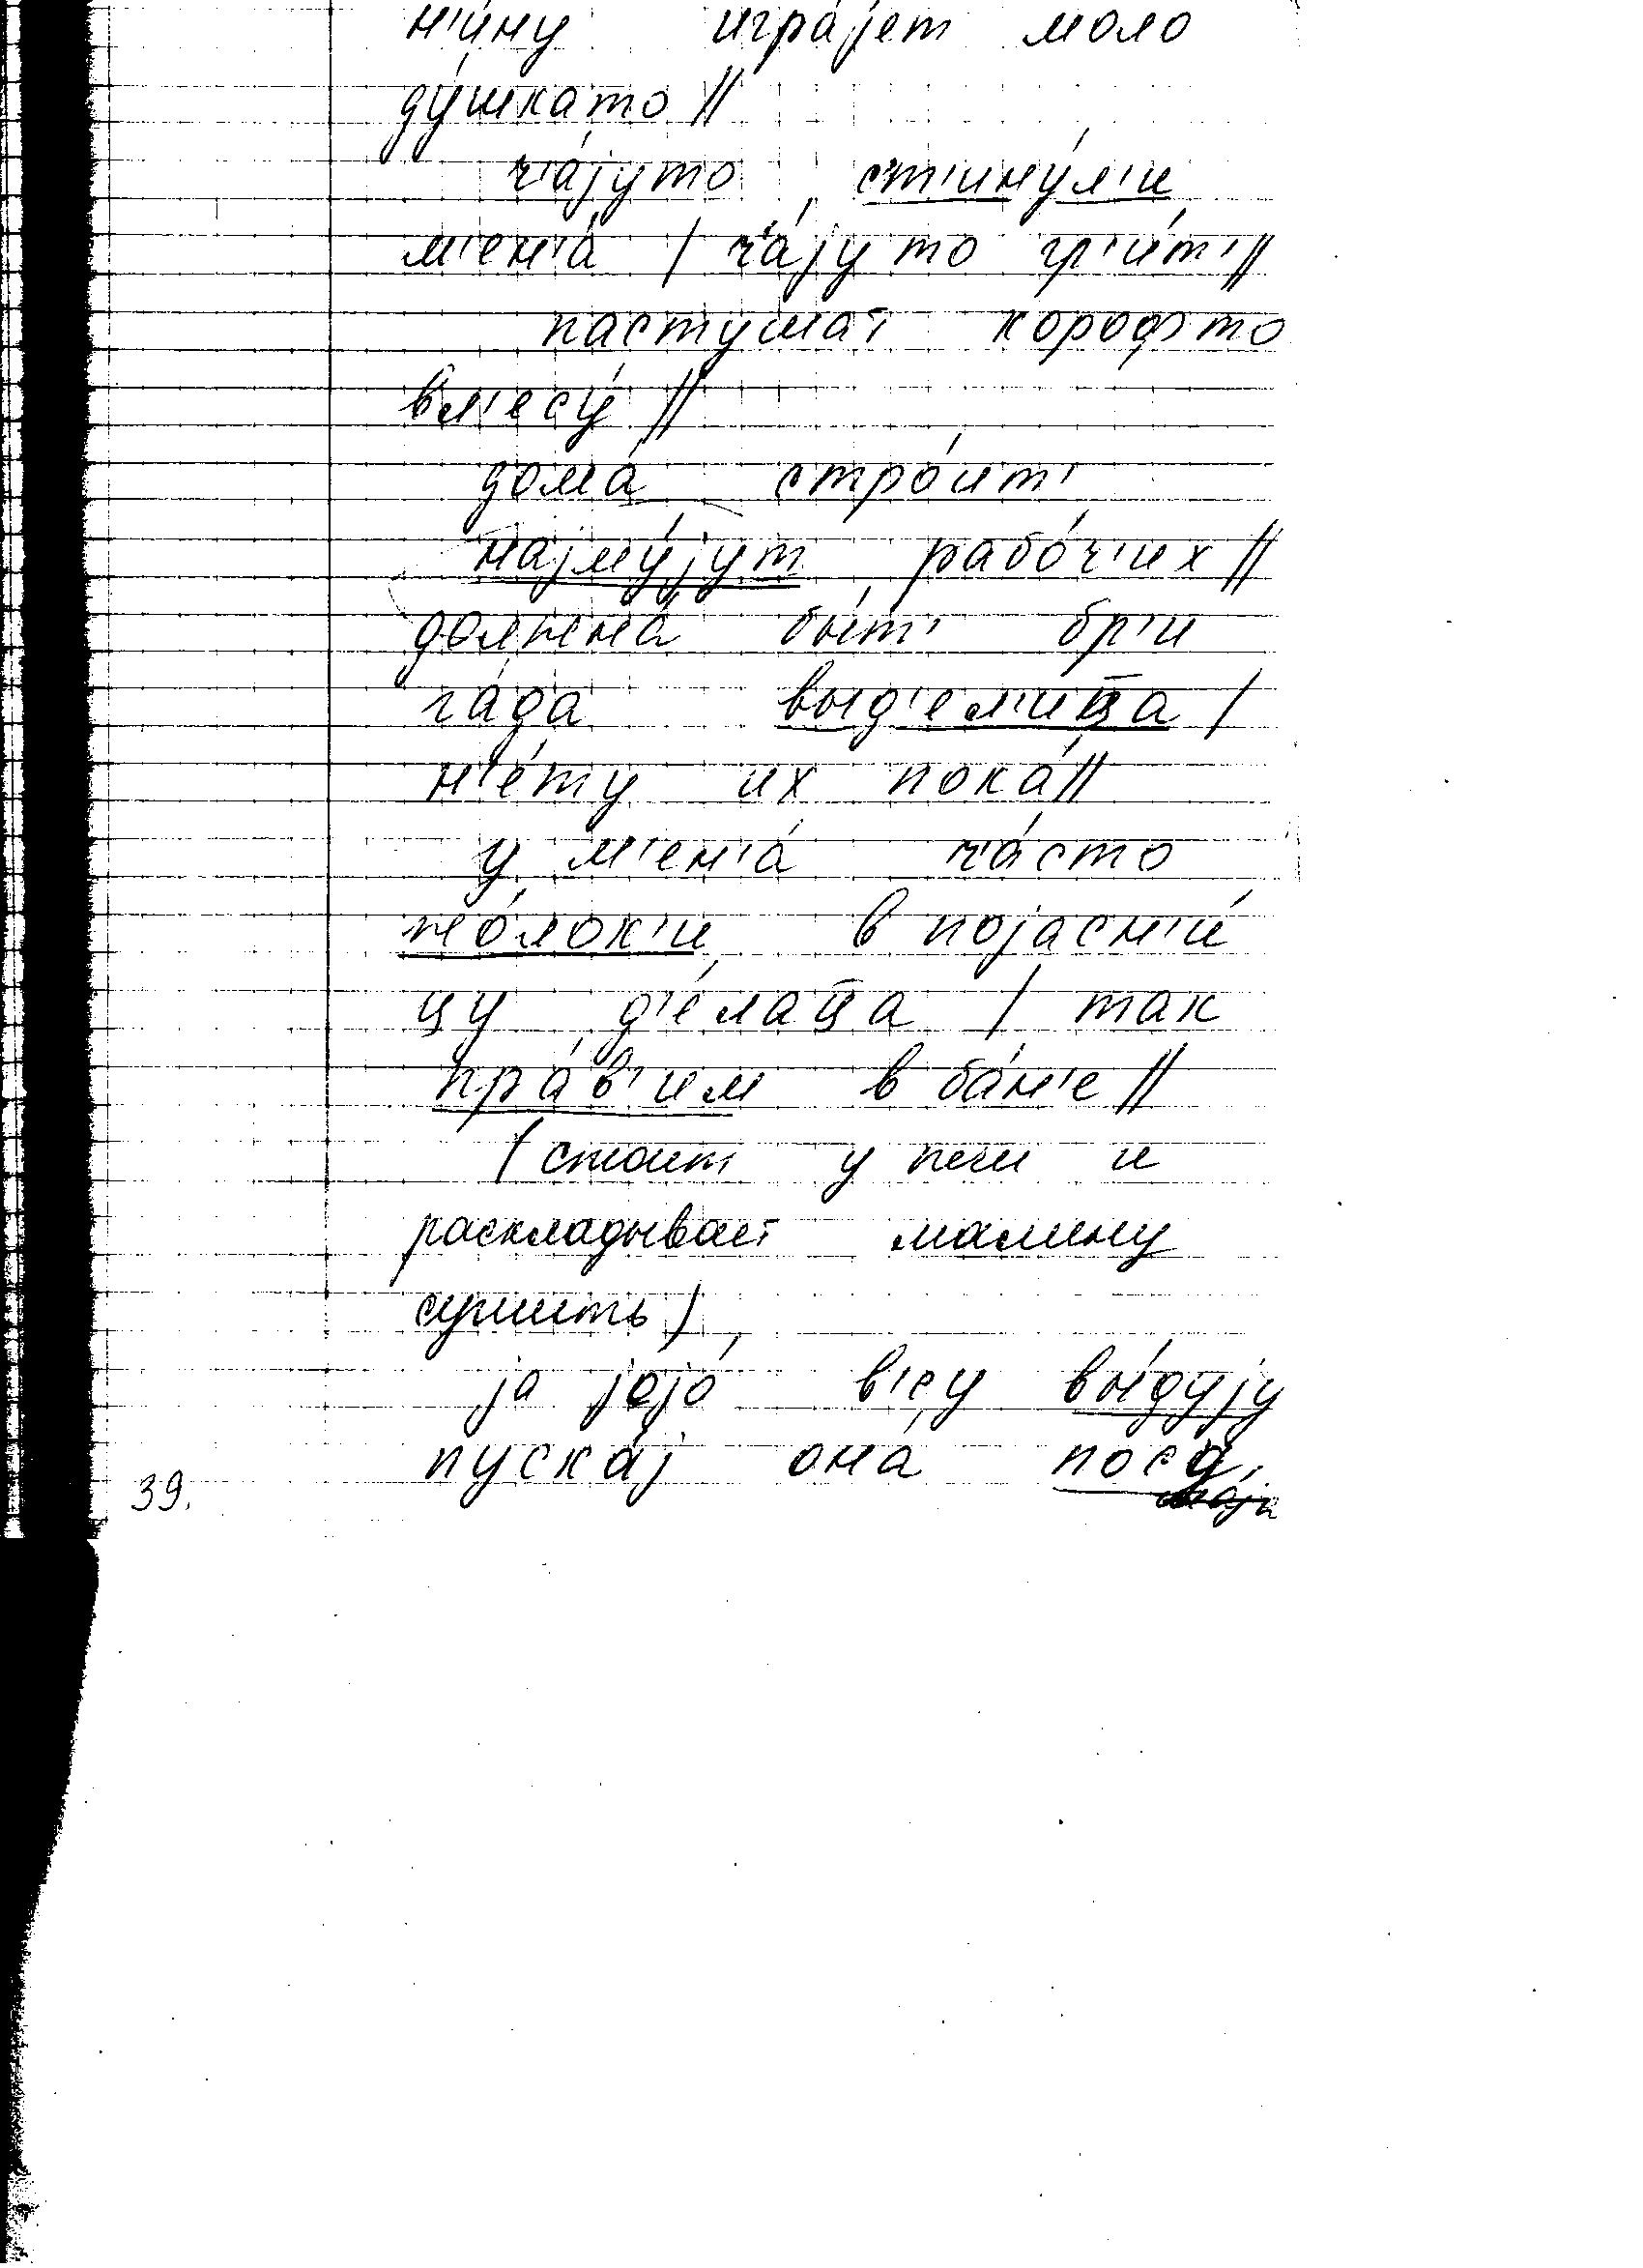 н'и́ну игра́јет моло
ду́шкато //
ч'а́јуто ст'ину́л'и
м'ен'а́ / ч'а́јуто гр'и́т' //
пастушат корофто
вл'есу́ //
дома́ стро́ит'
најму́јут рабо́ч'их //
должна́ быт' бр'и
га́да выд'ел'ица /
н'е́ту их пока́ //
у м'ен'а́ ч'а́сто
жо́лок'и в појасн'и́
цу д'е́лаца / так
пра́в'им в ба́н'е //
(стоит у печи и
раскладывает малину
сушить)
ја јејо́ в'с'у вы́дују
пуска́ј она́
39.